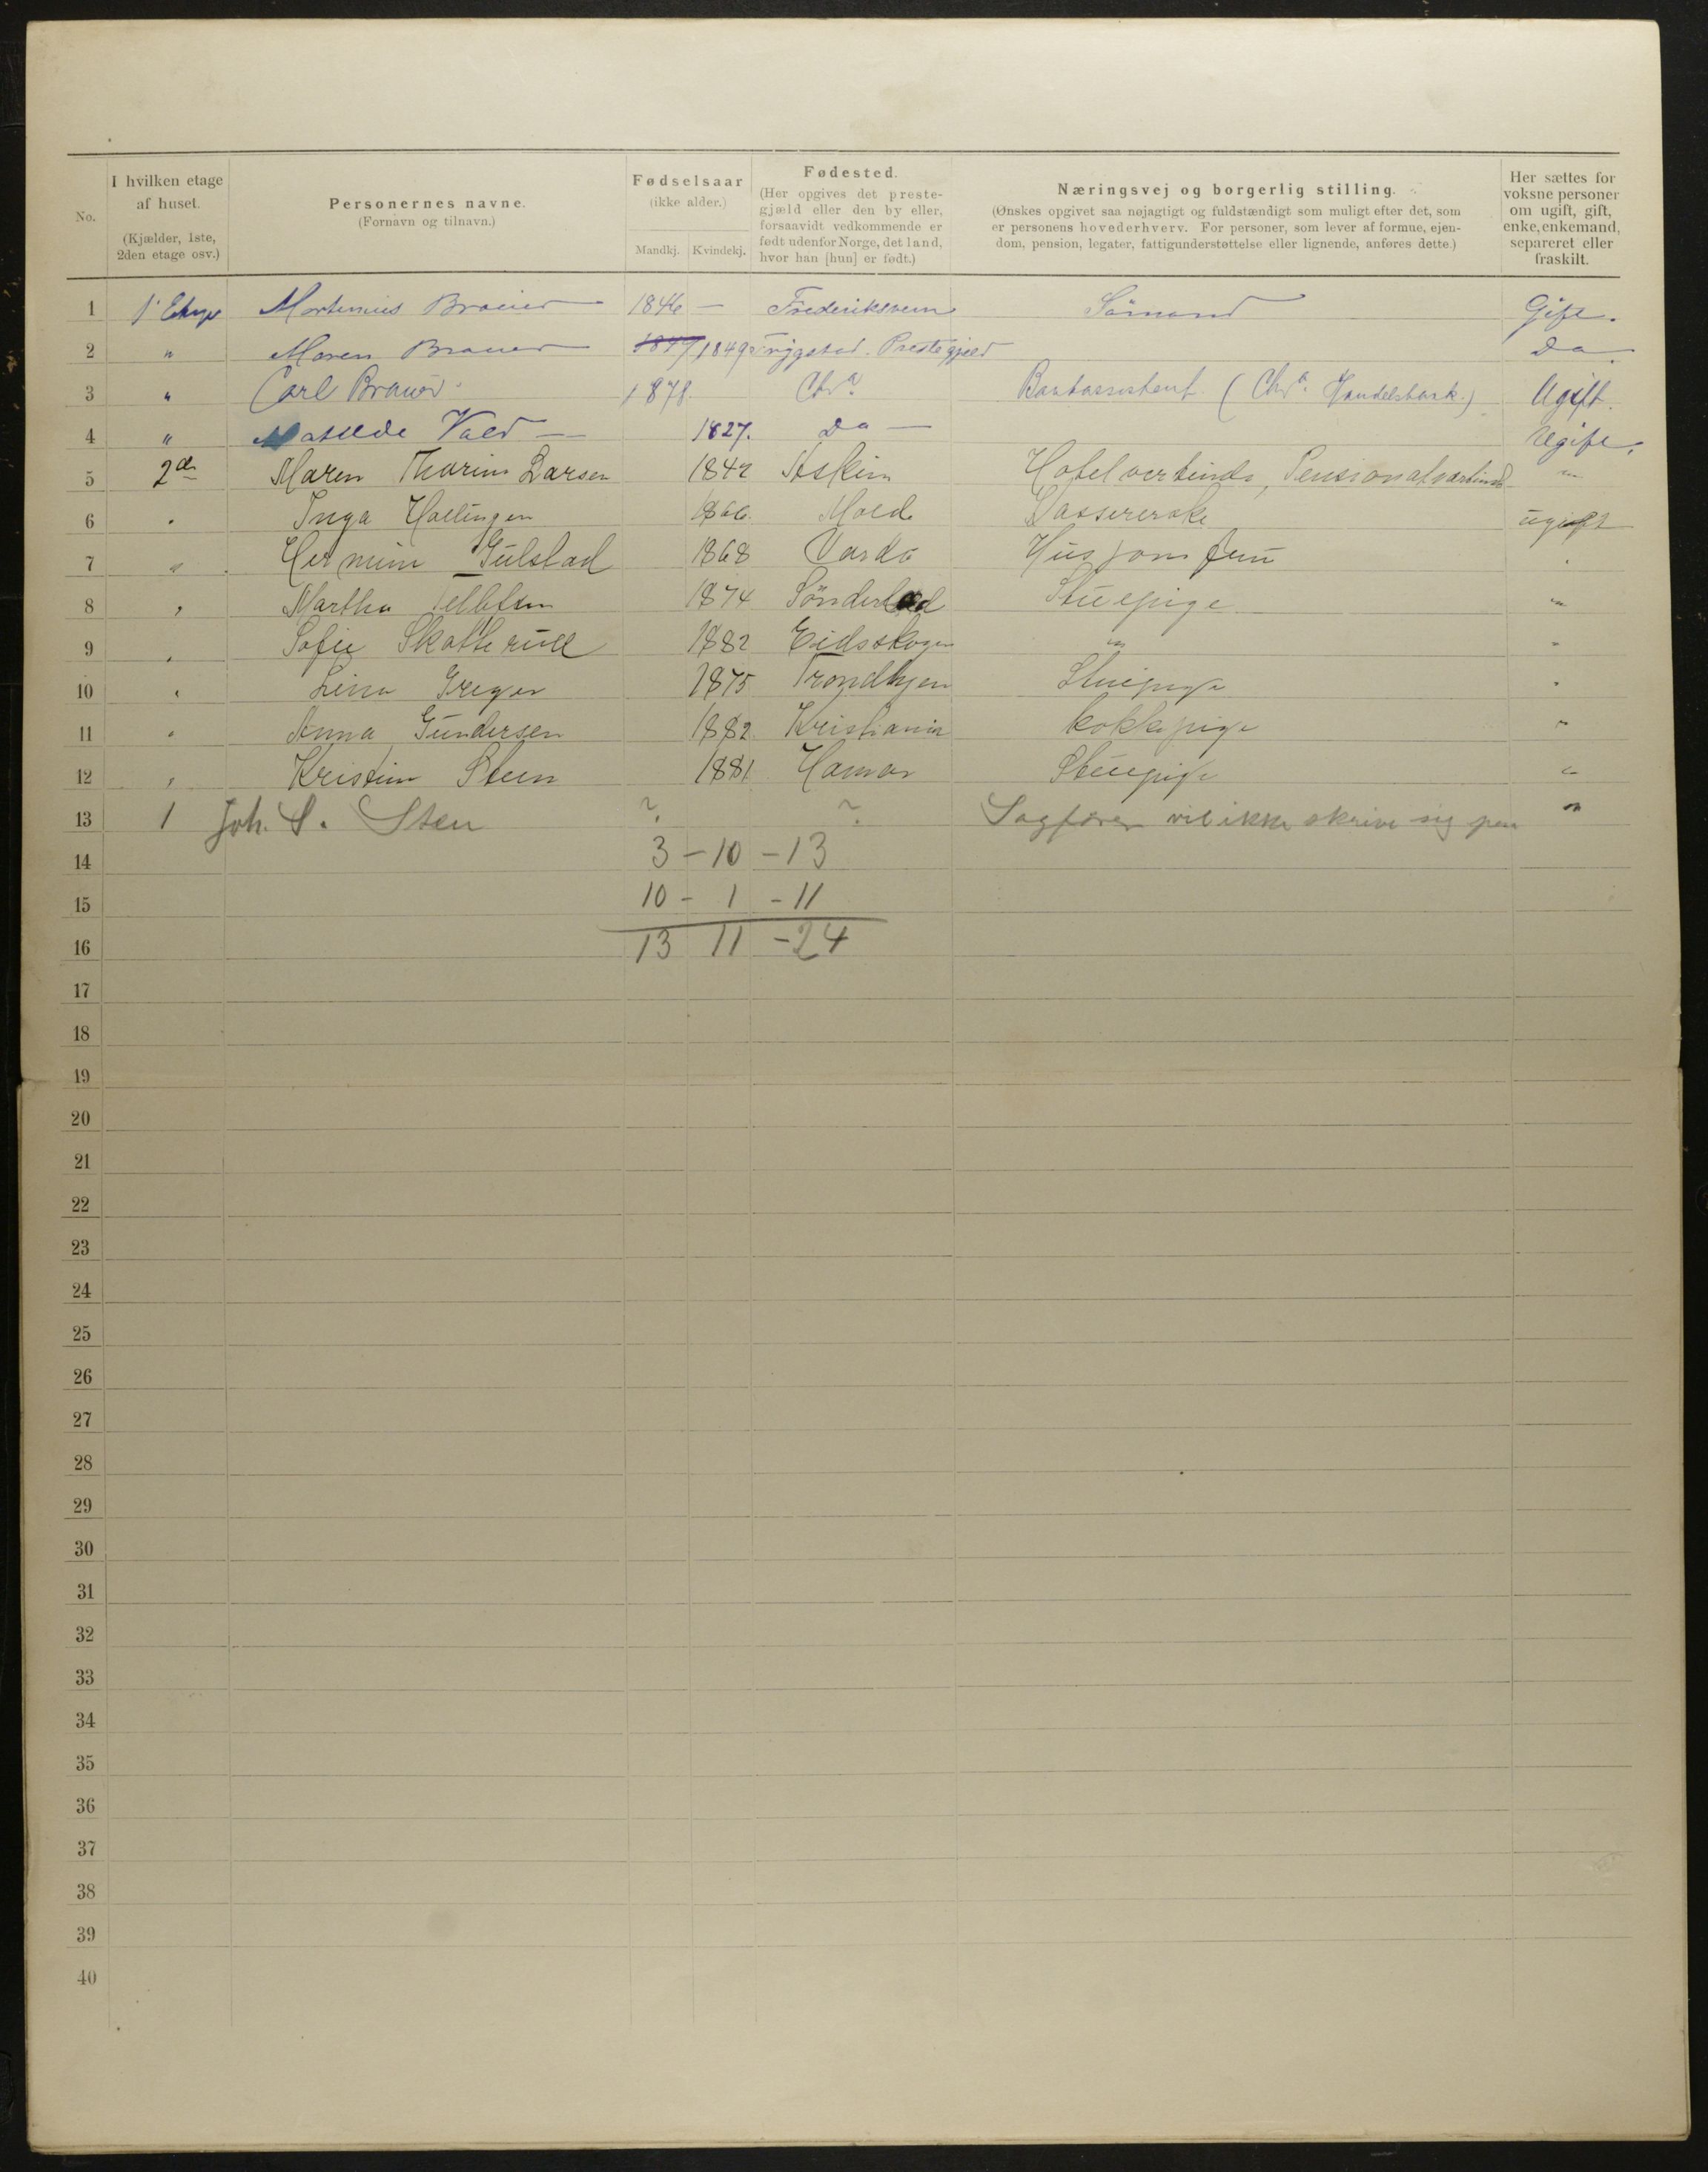 No.
I hvilken etage af huset. (Kjælder, 1ste, 2den etage osv.)
Personernes navne. (Fornavn og tilnavn.)
Fødselsaar (ikke alder.) Mandkj. Kvindekj.
Fødested. (Her opgives det prestegjæld eller den by eller, forsaavidt vedkommende er født udenfor Norge, det land, hvor han [hun] er født.)
Næringsvej og borgerlig stilling. (Ønskes opgivet saa nøjagtigt og fuldstændigt som muligt efter det, som er personens hovederhverv. For personer, som lever af formue, ejendom, pension, legater, fattigunderstøttelse eller lignende, anføres dette.)
Her sættes for voksne personer om ugift, gift, enke, enkemand, separeret eller fraskilt.
1 1' Etage Martinius Brauer 1846 — Frederiksvern Sömand Gift.
2 " Maren Brauer 1849 Trygstad Prestegjeld Do.
3 " Carl Brauer 1878. Chra. Bankassistent (Chra. Handelsbank.) Ugift.
4 " Matilde Vald — 1827. Do — Ugift.
5 2den Maren Thorine Larsen 1842 Askim Hotelvertinde, Pensionatvertinde "
6 " Inga Hollingen 1866. Molde Kassererske ugift
7 " Hermine Gulstad 1868 Vardö Husjomfru "
8 " Martha Tellefsen 1874 Sönderled Stuepige "
9 " Sofie Skotterud 1882 Eidsskogen " "
10 " Lina Greger 1875 Trondhjem Stuepige "
11 " Anna Gundersen 1882. Kristiania kokkepige "
12 " Kristine Steen 1881 Hamar Stuepige "
13 1 Joh. S. Sten ? ? Sagförer vil ikke skrive sig paa "
14 3 — 10 — 13
15 10 — 1 — 11
16 13 11 — 24
17
18
19
20
21
22
23
24
25
26
27
28
29
30
31
32
33
34
35
36
37
38
39
40